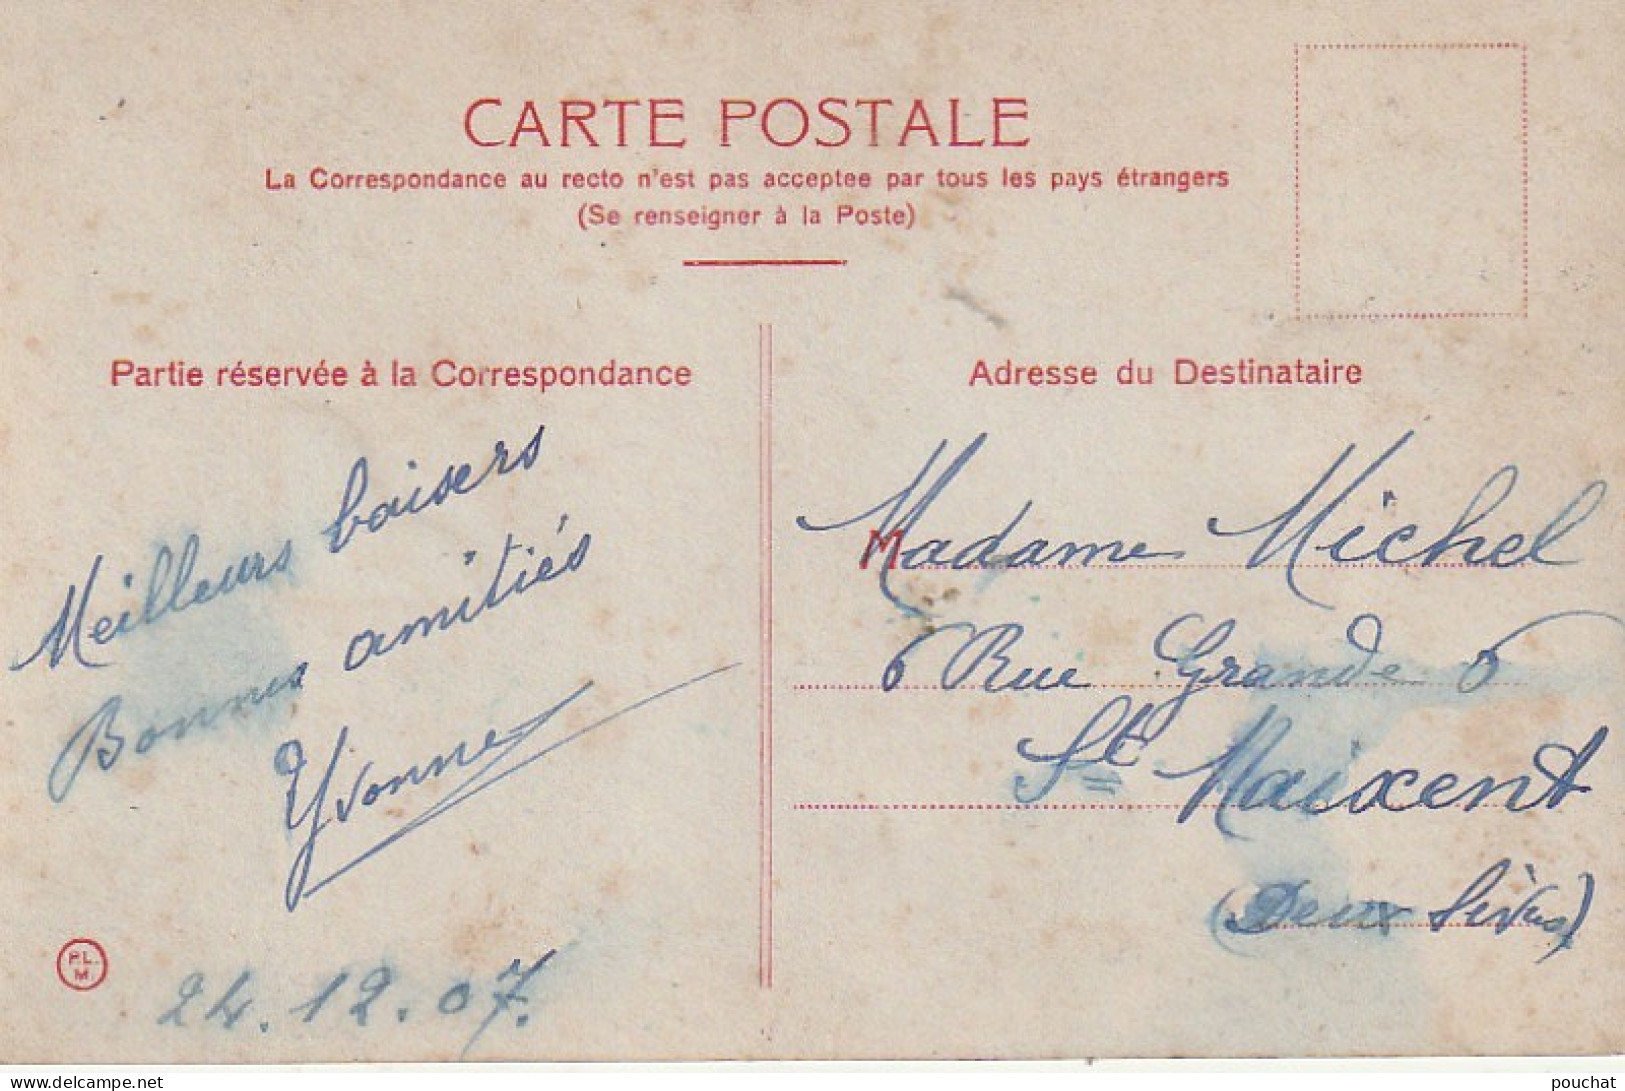 CARTE POSTALE
La Correspondance au recto n'est pas acceptee par tous les pays étrangers
(Se renseigner à la Poste)
Partie réservée à la Correspondance
Meilleurs baisers
Bonnes amitiés
Yvonne
24.12.07.
P.L.
M
Adresse du Destinataire
Madame Michel
6 Rue Grande 6
St Maixent
(Deux Sèvres)
www.delcampe.net
pouchat